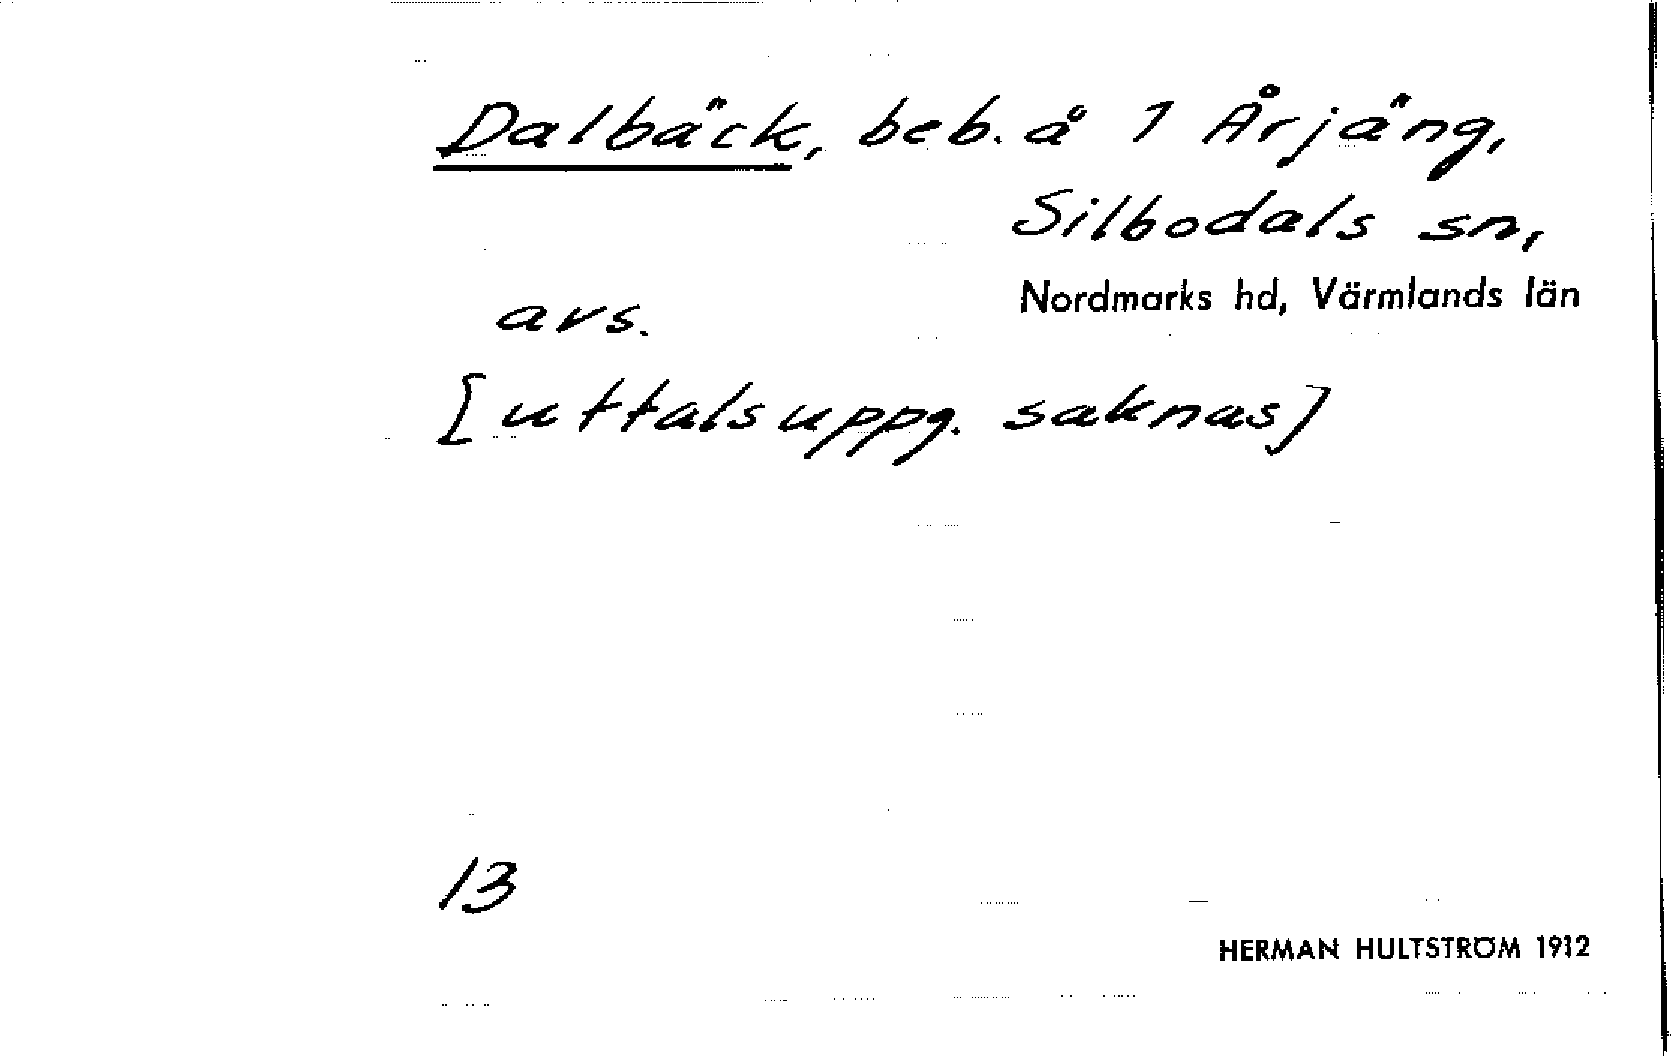 Dalbäck, beb. å 1 Årjäng,
Silbodals sn,
Nordmarks hd, Värmlands län
avs.
[uttalsuppg. saknas]
13
HERMAN HULTSTRÖM 1912